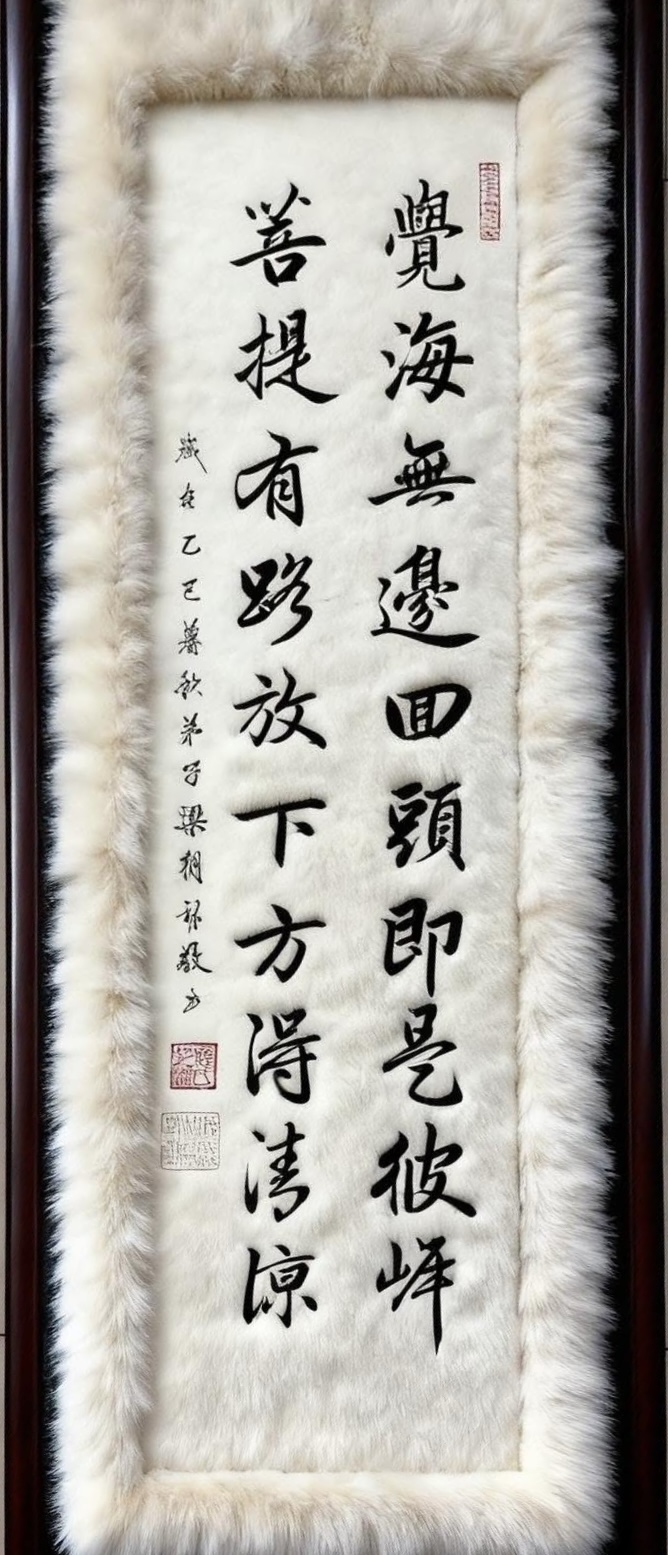 覺海無邊回頭即是彼岸
菩提有路放下方得清涼
歲在乙巳暮秋弟子梁朝敬書